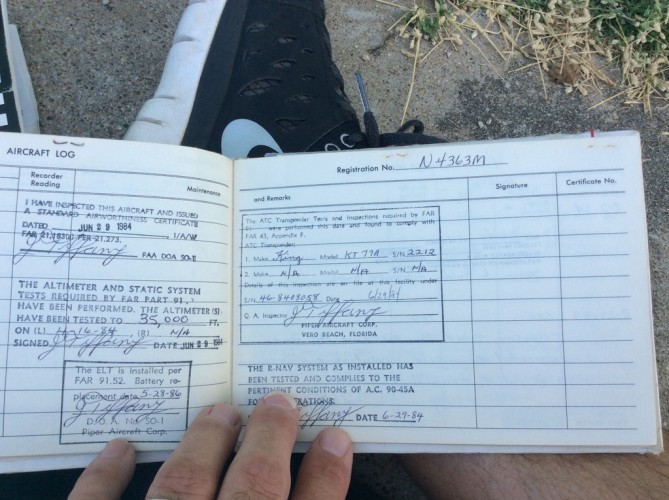 AIRCRAFT LOG
Recorder
Reading
Maintenance
I HAVE INSPECTED THIS AIRCRAFT AND ISSUED
A STANDARD AIRWORTHINESS CERTIFICATE
DATED JUN 29 1984
FAR 21.183(a) PER 21.273. I/A/W
J Tiffany FAA DOA SO-1
THE ALTIMETER AND STATIC SYSTEM
TESTS REQUIRED BY FAR PART 91.
HAVE BEEN PERFORMED. THE ALTIMETER (S)
HAVE BEEN TESTED TO 35,000 FT.
ON (L) 16-84, (R) N/A
SIGNED J Tiffany DATE JUN 29 1984
The ELT is installed per
FAR 91.52. Battery re-
placement date 5-28-86
J Tiffany
D.O.A. No. SO-1
Piper Aircraft Corp.
Registration No. N4363M
and Remarks
Signature
Certificate No.
The ATC Transponder Tests and inspections required by FAR
were performed this date and found to comply with
FAR 43, Appendix F.
ATC Transponder:
1. Make King Model KT 77A S/N 2212
2. Make N/A Model N/A S/N N/A
Details of this inspection are on file at this facility under
S/N 46-8408058 Date 6/29/84
Q. A. Inspector J Tiffany
PIPER AIRCRAFT CORP.
VERO BEACH, FLORIDA
THE R-NAV SYSTEM AS INSTALLED HAS
BEEN TESTED AND COMPLIES TO THE
PERTINENT CONDITIONS OF A.C. 90-45A
Tiffany DATE 6-29-84